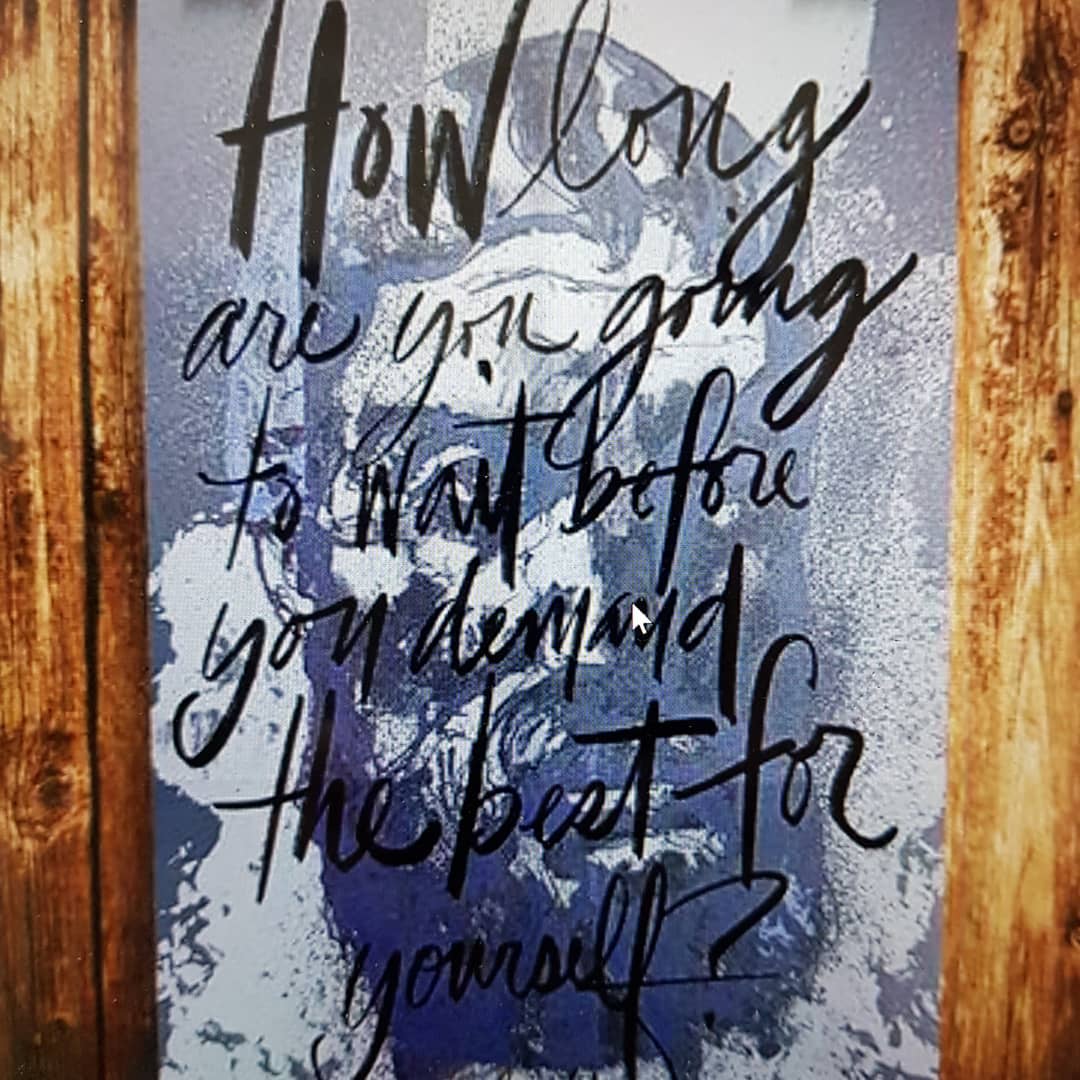 How long
are you going
to wait before
you demand
the best for
yourself?